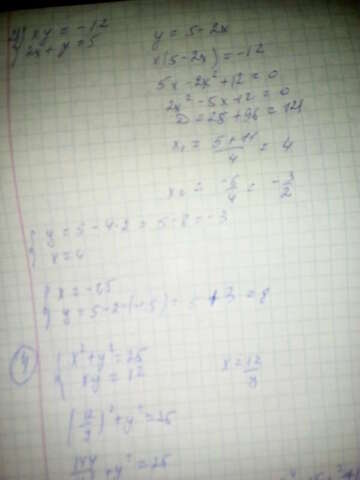 { xy = -12
{ 2x + y = 5
y = 5 - 2x
x(5 - 2x) = -12
5x - 2x² + 12 = 0
2x² - 5x - 12 = 0
D = 25 + 96 = 121
x₁ = (5 + 11)/4 = 4
x₂ = -6/4 = -3/2
{ y = 5 - 4·2 = 5 - 8 = -3
{ x = 4
{ x = -1,5
{ y = 5 - 2·(-1,5) = 5 + 3 = 8
4) { x² + y² = 25
{ xy = 12
x = 12/y
(12/y)² + y² = 25
144/ + y² = 25